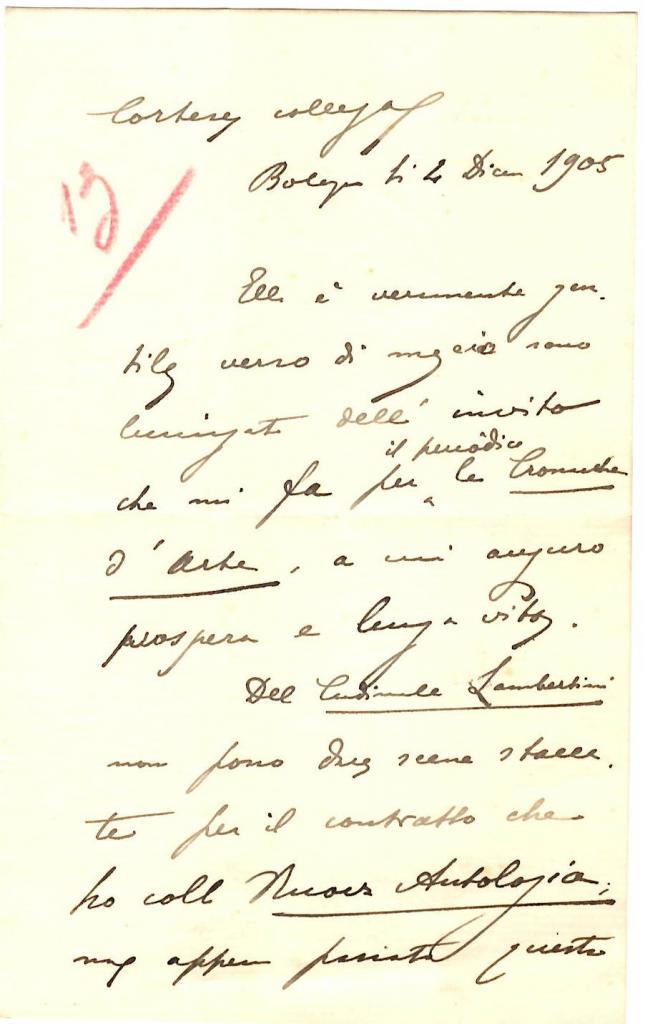 Cortese collega
Bologna li 2 Dicem 1905
13
Ella è veramente gen-
tile verso di me, ed io sono
lusingato dell' invito
che mi fa per il periodico le Cronache
d'Arte, a cui auguro
prospera e lunga vita.
Del Cardinale Lambertini
non posso dare scene stacca-
te per il contratto che
ho coll Nuova Antologia;
ma appena questo